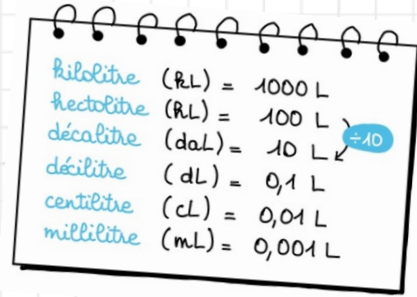 kilolitre (kL) = 1000 L
hectolitre (hL) = 100 L
décalitre (daL) = 10 L
÷10
décilitre (dL) = 0,1 L
centilitre (cL) = 0,01 L
millilitre (mL) = 0,001 L